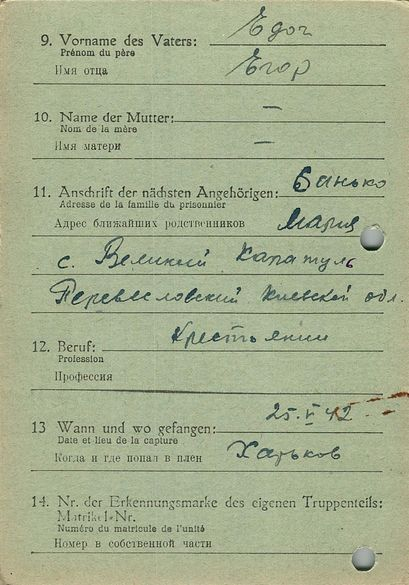 9. Vorname des Vaters:
Prénom du père
Имя отца Егор
10. Name der Mutter: —
Nom de la mère
Имя матери —
11. Anschrift der nächsten Angehörigen: Банько
Adresse de la famille du prisonnier
Адрес ближайших родственников Мария
с. Великий Каратуль
Переяславский Киевской обл.
12. Beruf: Крестьянин
Profession
Профессия
25. V 42
13 Wann und wo gefangen:
Date et lieu de la capture
Когда и где попал в плен Харьков
14. Nr. der Erkennungsmarke des eigenen Truppenteils:
Matrikel-Nr.
Numéro du matricule de l'unité
Номер в собственной части